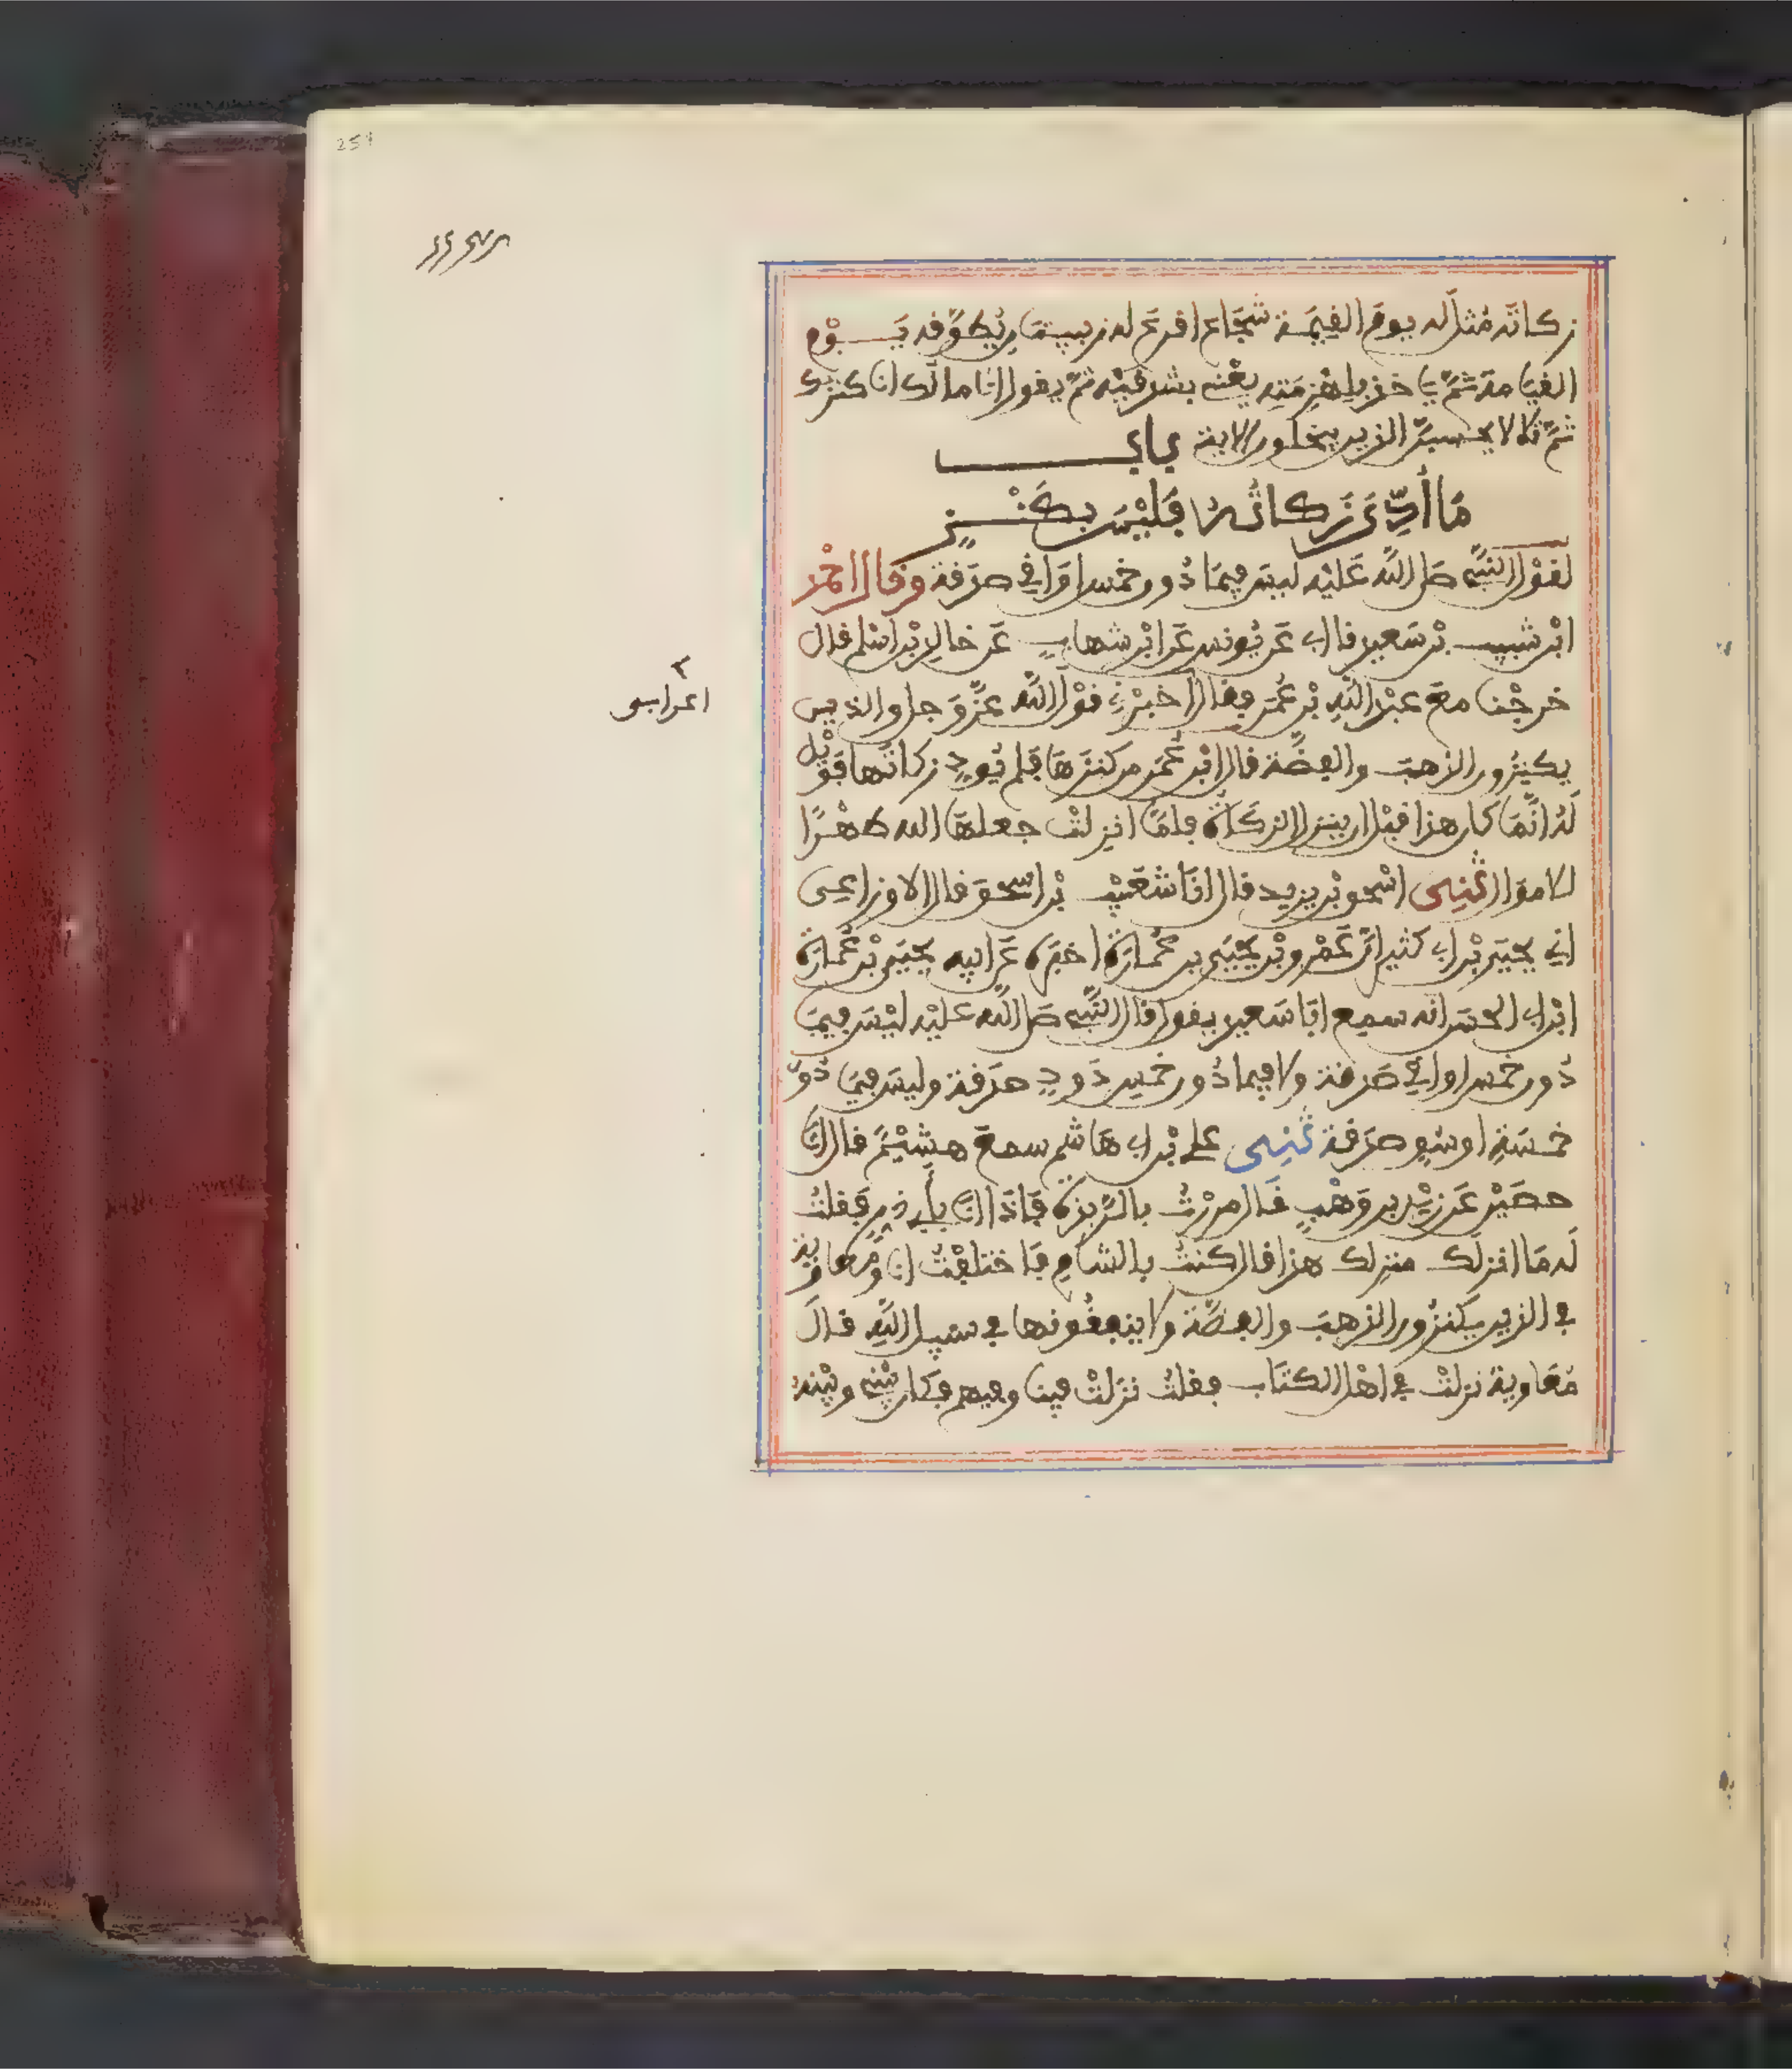 زكاته مثل له يوم القيمة شجاعا اقرع له زبيبتان يطوقه يوم
القيامة ثم ياخذ بلهزمتيه يعني بشدقيه ثم يقول انا مالك انا كنزك
ثم تلا لا يحسبن الذين يبخلون الاية باب
ما أدي زكاته فليس بكنز
لقول النبي صلى الله عليه ليس فيما دون خمس اواقي صدقة وقال احمد
ابن شبيب بن سعيد قال ابي عن يونس عن ابن شهاب عن خالد بن اسلم قال
خرجنا مع عبد الله بن عمر فقال اخبرني قول الله عز وجل والذين
يكنزون الذهب والفضة قال ابن عمر من كنزها فلم يؤد زكاتها فويل
له انما كان هذا قبل ان ينزل الزكاة فلما انزلت جعلها الله طهرا
للاموال ثني اسحق بن يزيد قال انا شعيب بن اسحق قال الاوزاعي
اني يحيى بن ابي كثير ان عمرو بن يحيى بن عمارة اخبره عن ابيه يحيى بن عمارة
ابن ابي الحسن انه سمع ابا سعيد يقول قال النبي صلى الله عليه ليس فيما
دون خمس اواقي صدقة ولا فيما دون خمس ذود صدقة وليس فيما دون
خمسة اوسق صدقة ثني علي بن ابي هاشم سمع هشيم قال انا
حصين عن زيد بن وهب قال مررت بالربذة فاذا انا بأبي ذر فقلت
له ما انزلك منزلك هذا قال كنت بالشام فاختلفت انا ومعاوية
في الذين يكنزون الذهب والفضة ولا ينفقونها في سبيل الله قال
معاوية نزلت في اهل الكتاب فقلت نزلت فينا وفيهم فكان بيني وبينه
اعرابي